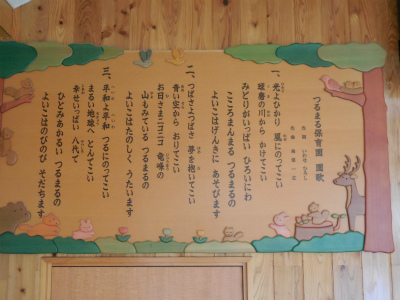 つるまる保育園 園歌
一、光よひかり 風にのってこい
球磨の川から かけてこい
みどりがいっぱい ひろいにわ
こころまんまる つるまるの
よいこはげんきに あそびます
二、つばさよつばさ 夢を抱いてこい
青い空から おりてこい
お日さまニコニコ 竜峰の
山もみている つるまるの
よいこはたのしく うたいます
三、平和よ平和 つるにのってこい
まるい地球へ とんでこい
幸せいっぱい 八代で
ひとみあかるい つるまるの
よいこはのびのび そだちます